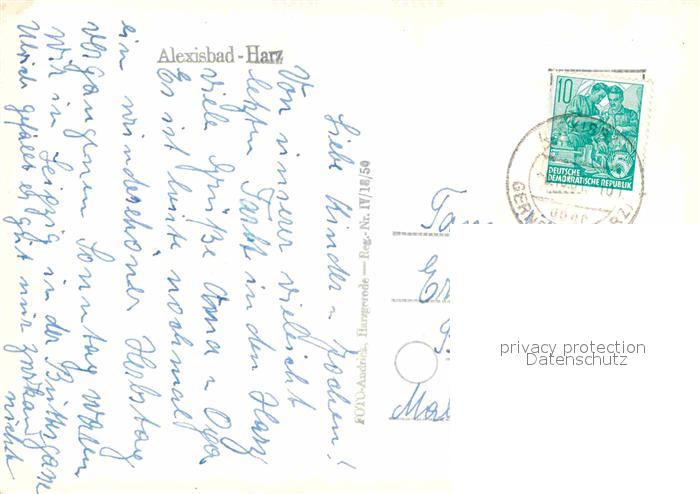 Alexisbad - Harz
Liebe Kinder u Jochen!
Von unserer vielleicht
letzten Fahrt in den Harz
viele Grüße Oma u Opa
Es ist heute nochmal
ein wunderschöner Herbsttag
vergangenen Sonntag waren
wir in Leipzig in der
Ulrich gefällt es gut nur
nicht
FOTO-Andrick, Harzgerode — Reg.-Nr. IV/18/59
10
5
DEUTSCHE
DEMOKRATISCHE REPUBLIK
privacy protection
Datenschutz